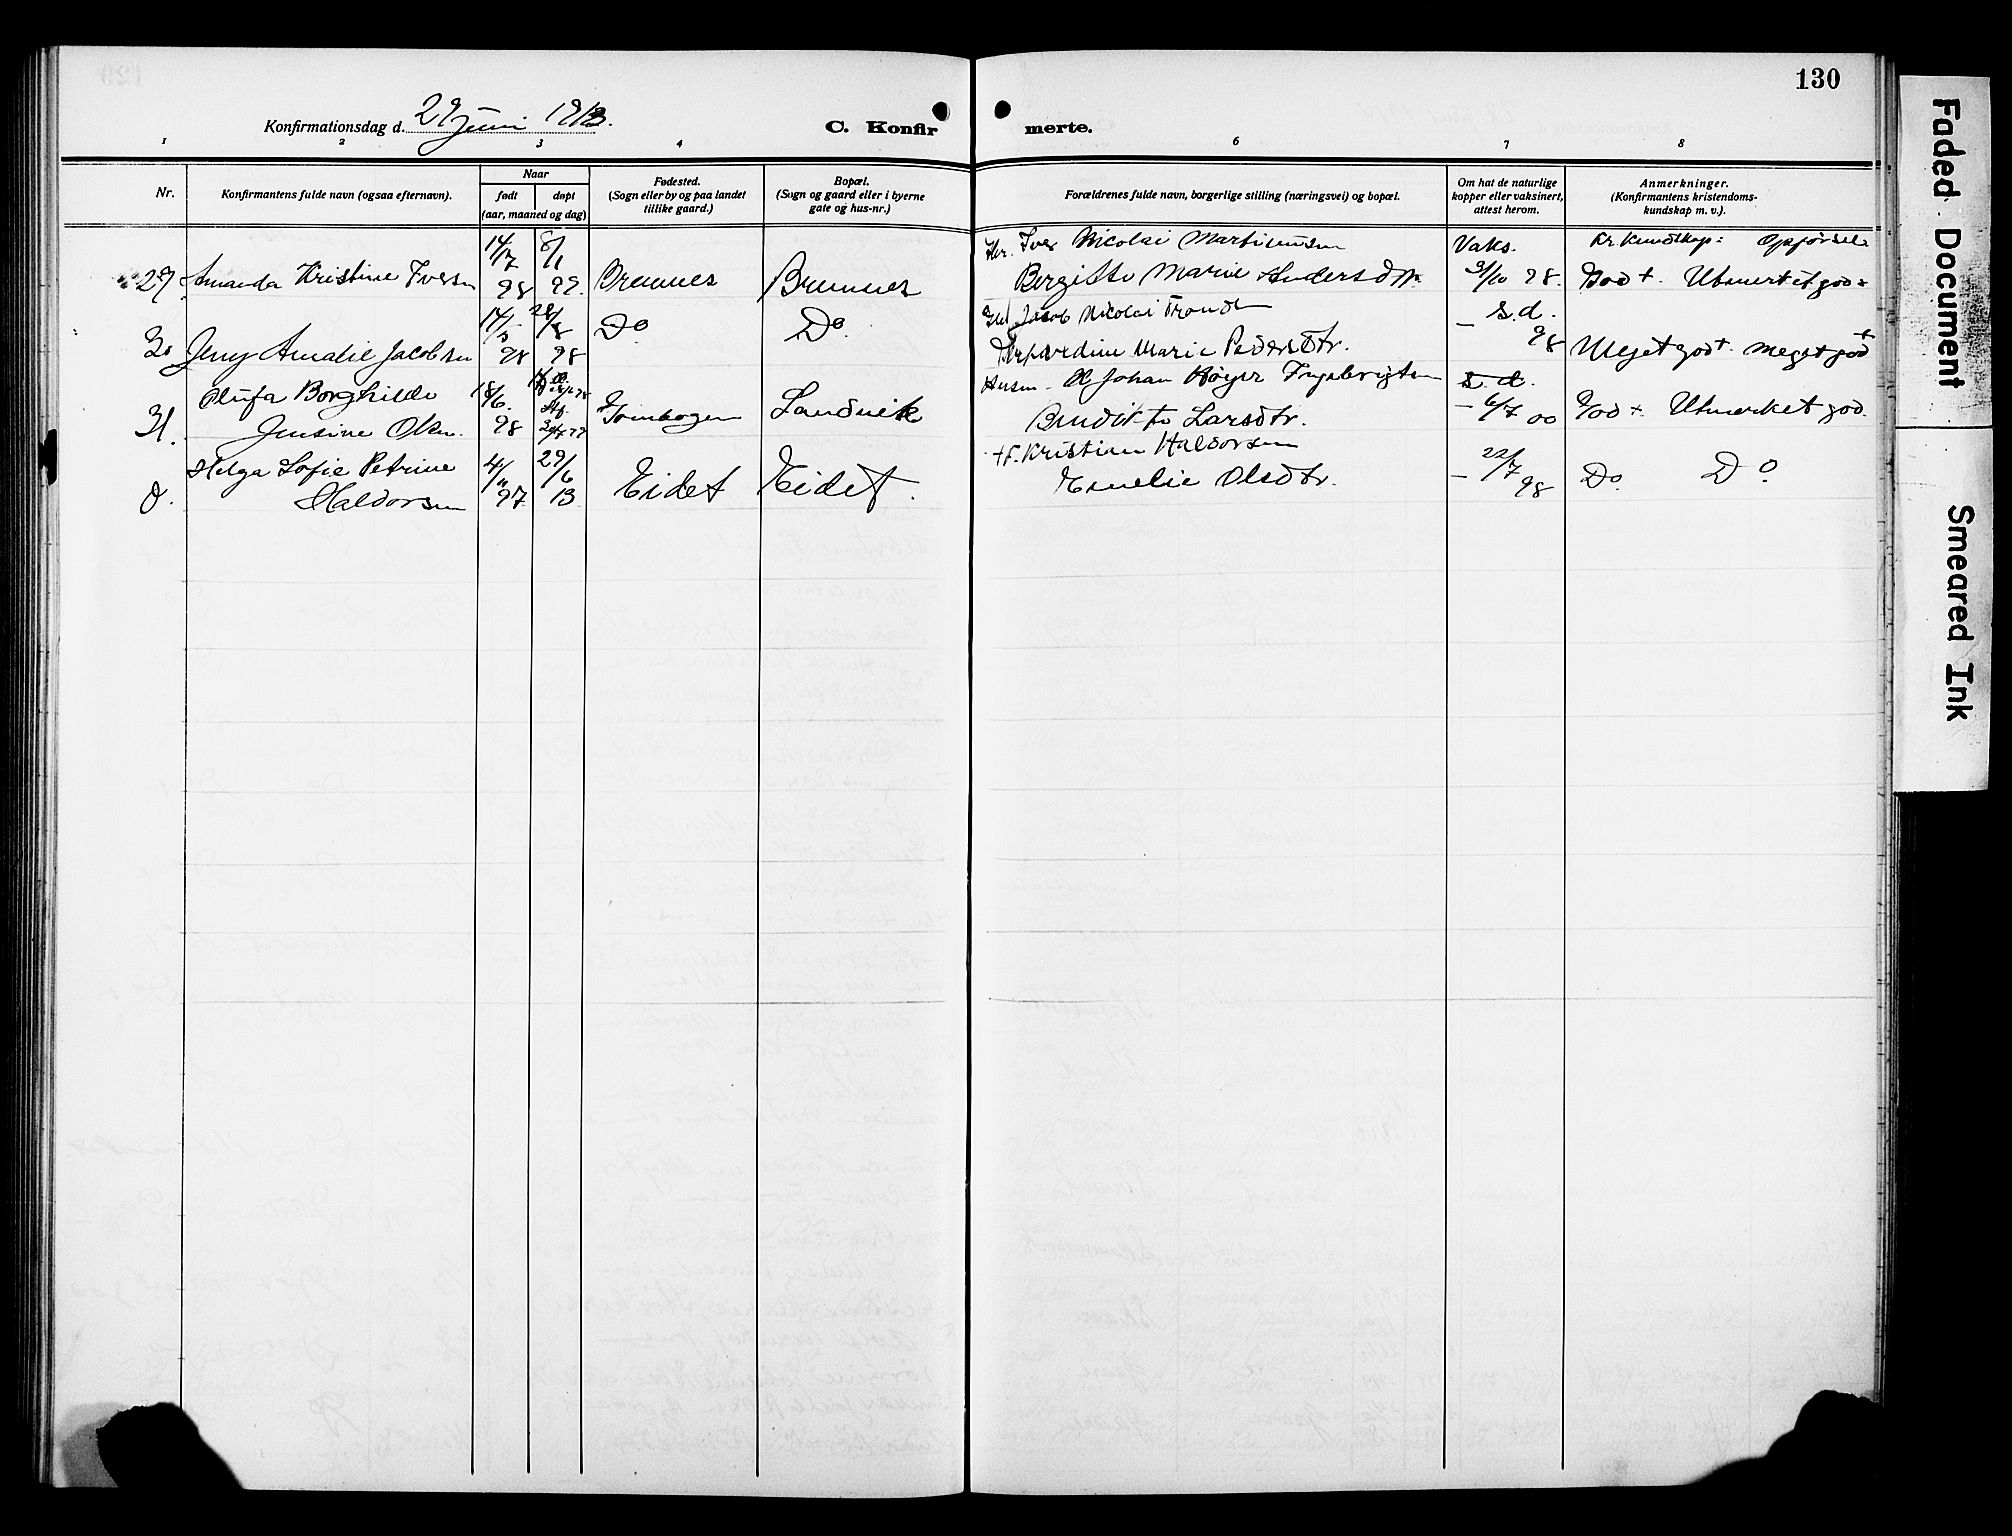 130
Konfirmationsdag d. 29 Juni 1913.
C. Konfirmerte.
1 2 3 4 6 7 8
Nr.
Konfirmantens fulde navn (ogsaa efternavn).
Naar
født
døpt
(aar, maaned og dag)
Fødested.
(Sogn eller by og paa landet
tillike gaard.)
Bopæl.
(Sogn og gaard eller i byerne
gate og hus-nr.)
Forældrenes fulde navn, borgerlige stilling (næringsvei) og bopæl.
Om hat de naturlige
kopper eller vaksinert,
attest herom.
Anmerkninger.
(Konfirmantens kristendoms-
kundskap m. v.).
14/7 8/1 Iver Nicolai Martinussen Vaks. Kr. Kundskap: Opførsel:
29 Amanda Kristine Iversen 98 99. Brennes Brennes Bergitte Marie Andersdtr. 3/10 98. God +. Utmerket god +
14/5 28/8 Do Do. Jacob Nicolai Trondt s.d.
30 Jeny Amalie Jacobsen 98 98 Marie Pedersdtr. 98 Meget god +. Meget god +
Olufa Borghilde 18/6. Husm. Johan Høyer Ingebrigtsen
31. Jensine Olsen. 98 Sandvik Larsdtr. – 6/7 00 God +. Utmerket god.
Helga Sofie Petrine 4/11 29/6 Kristian Haldorsen 22/7
Haldorsen 97. 13 Eidet Eidet. Emelie Olsdtr. – 98 Do. Do.
Faded Document
Smeared Ink